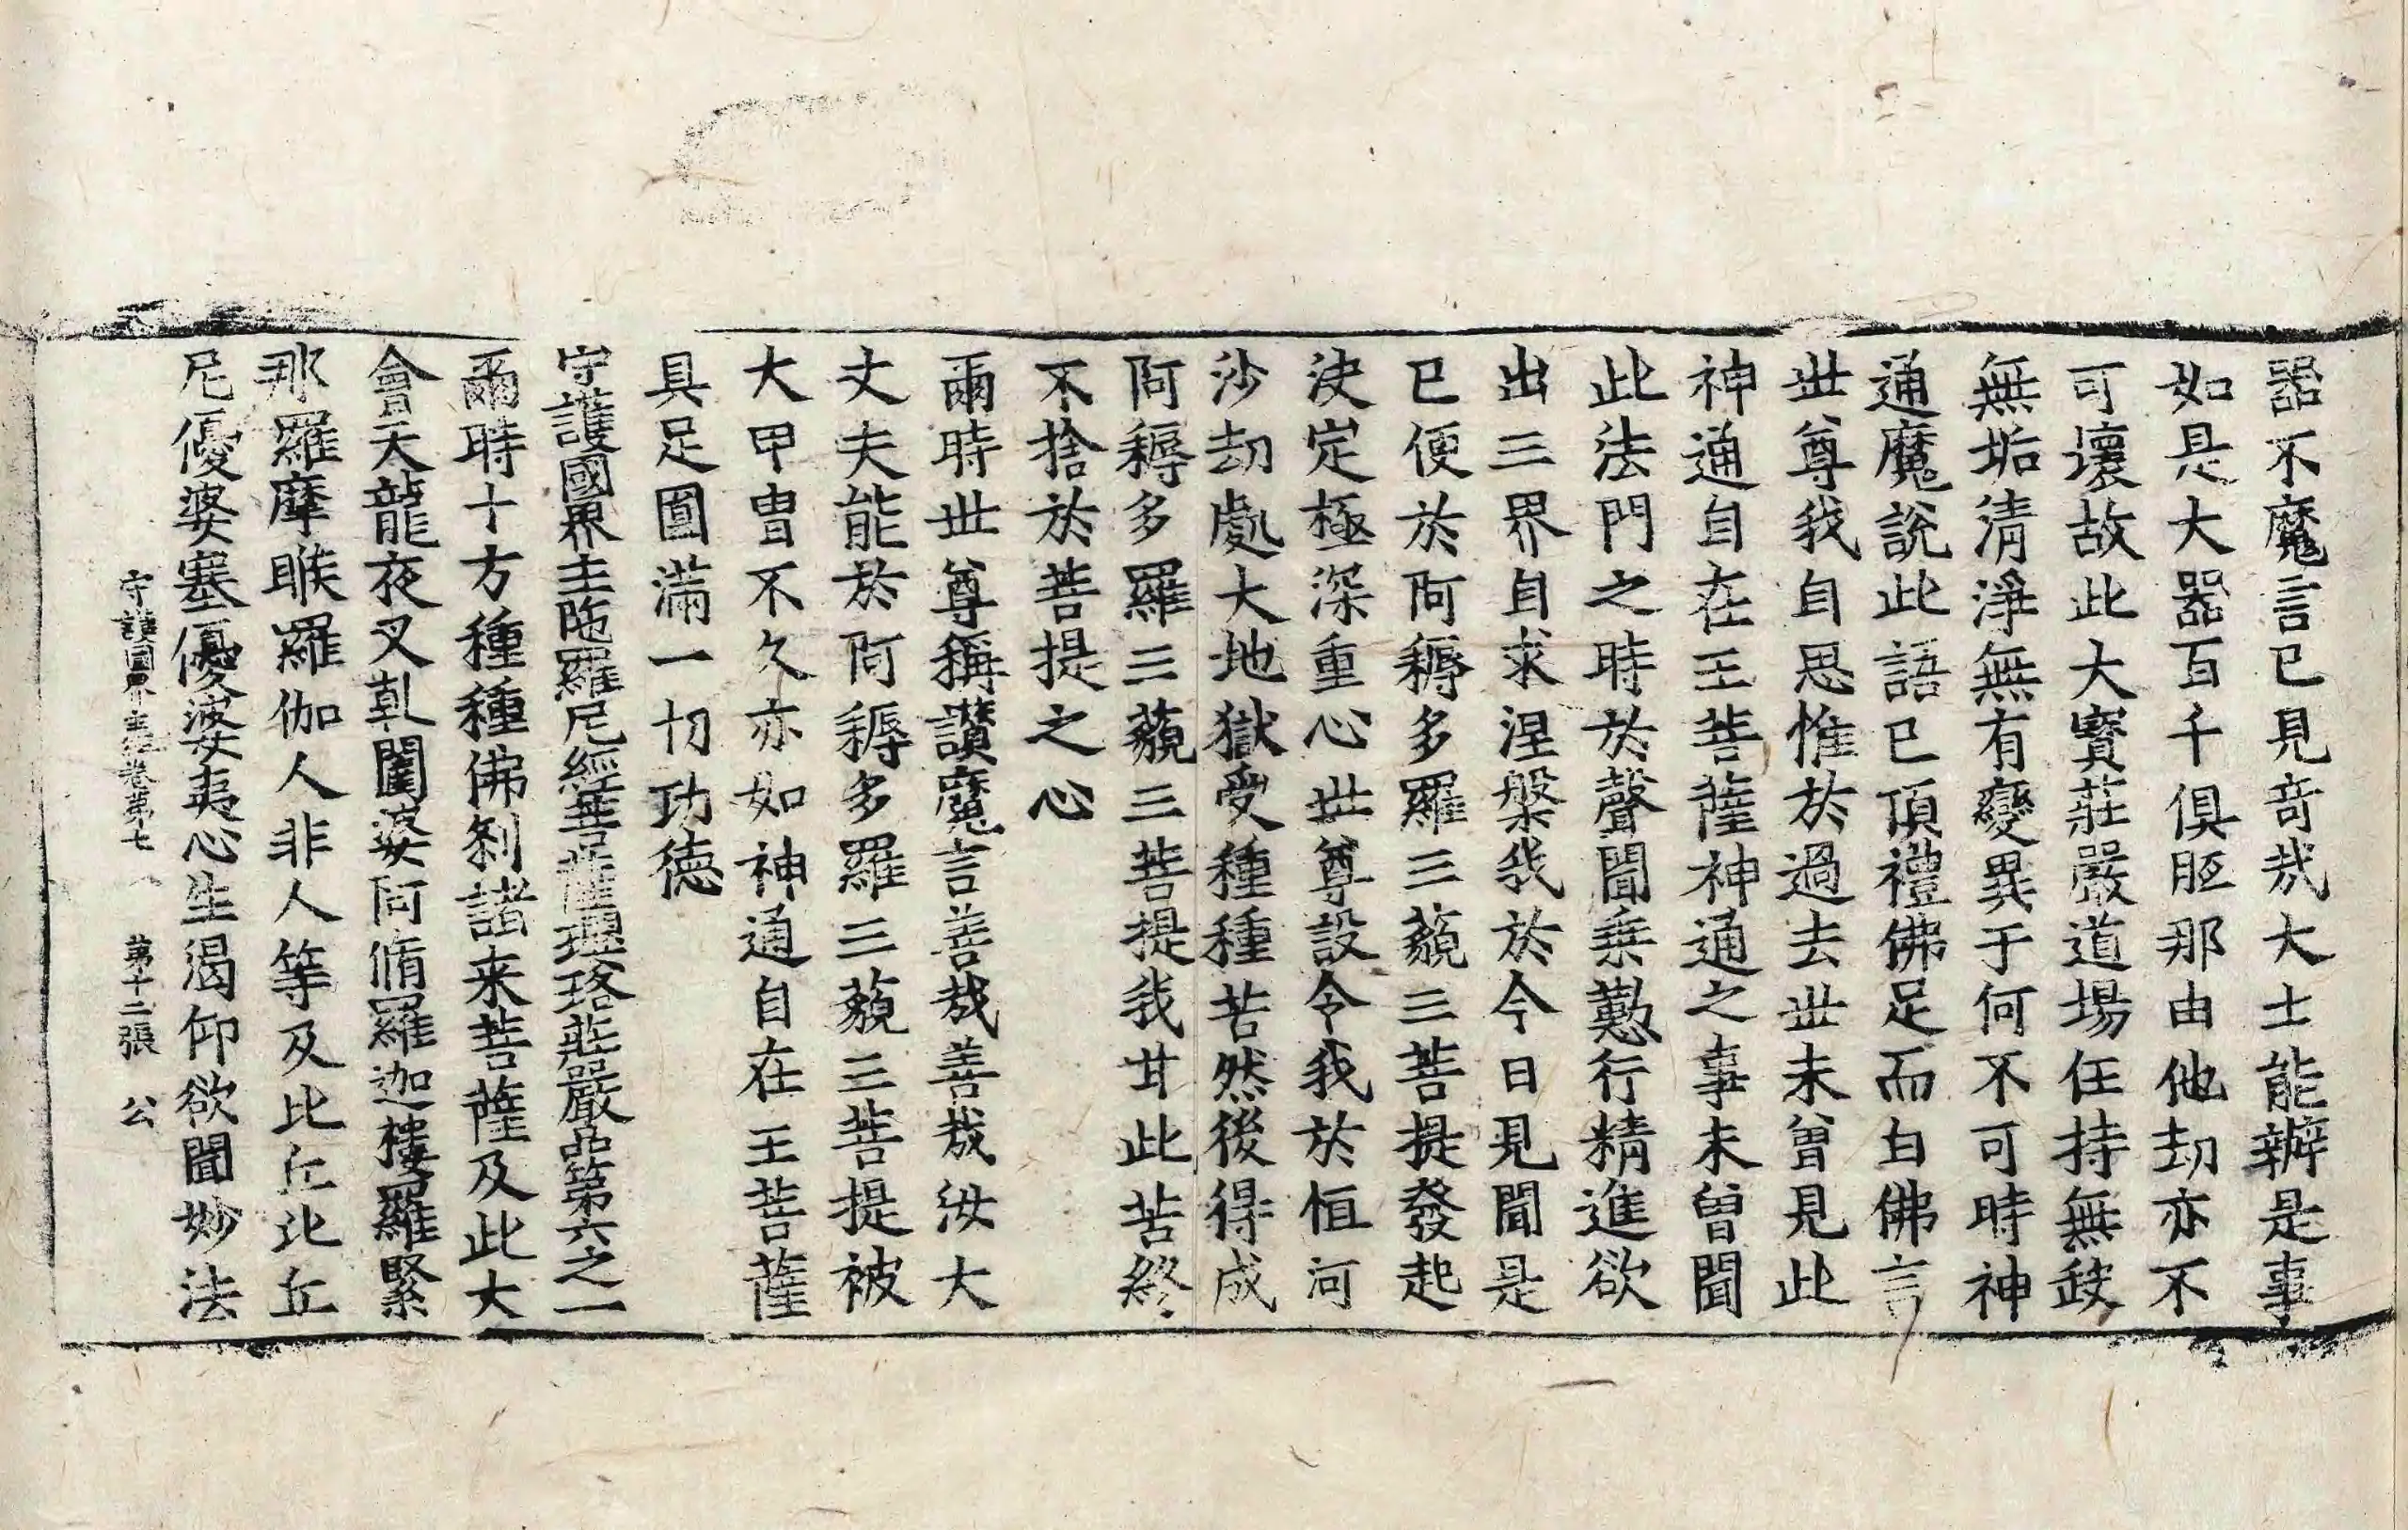 器不魔言已見竒哉大士能辦是事
如是大器百千俱胝那由他劫亦不
可壞故此大寳莊嚴道場任持無缺
無垢清淨無有變異于何不可時神
通魔說此語已頂禮佛足而白佛言
世尊我自思惟於過去世未曾見此
神通自在王菩薩神通之事未曾聞
此法門之時於聲聞乗懃行精進欲
出三界自求涅槃我於今日見聞是
已便於阿耨多羅三藐三菩提發起
決定極深重心世尊設令我於恒河
沙劫處大地獄受種種苦然後得成
阿耨多羅三藐三菩提我甘此苦終
不捨於菩提之心
爾時世尊稱讃魔言善哉善哉汝大
丈夫能於阿耨多羅三藐三菩提被
大甲冑不久亦如神通自在王菩薩
具足圎滿一切功德
守護國界主陁羅尼經菩薩瓔珞莊嚴品第六之一
爾時十方種種佛刹諸来菩薩及此大
會天龍夜叉乹闥婆阿脩羅迦樓羅緊
那羅摩睺羅伽人非人等及比丘比丘
尼優婆塞優婆夷心生渴仰欲聞妙法
守護國界主經卷第七 第十二張 公